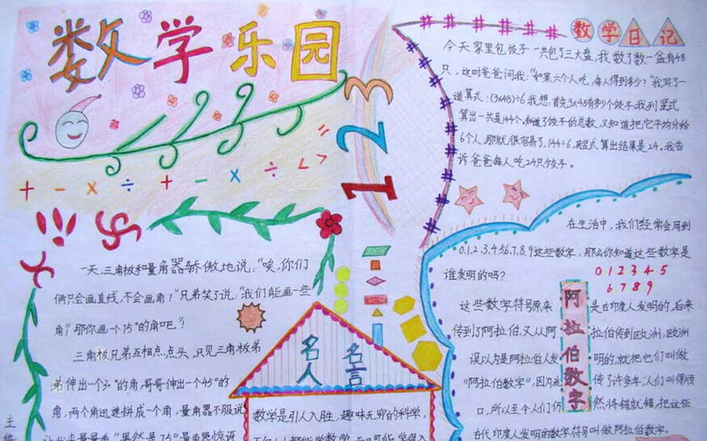 数学乐园
+ - × ÷ + - × ÷ < >
1 2 3
数学日记
今天家里包饺子一共包了三大盘,我数了数一盆有48
只,这时爸爸问我:"如果六个人吃,每人得到多少?"我写了一
道算式:(3×48)÷6我想:首先3×48有多少个饺子,我列竖式
算出一共是144个,知道了饺子的总数,又知道把它平均分给
6个人,那就很容易了,144÷6,竖式算出结果是24。我告
诉爸爸每人吃24只饺子。
一天,三角板和量角器骄傲地说:"唉,你们
俩只会画直线,不会画角!"兄弟笑了说:"我们能画一些
角?那你画一个75°的角吧?"
三角板兄弟互相点点头,只见三角板弟
弟伸出一个30°的角,哥哥伸出一个45°的
角,两个角迅速拼成一个角,量角器不服说
名人名言
数学是引人入胜,趣味无穷的科学,
在生活中,我们经常会用到
0.1.2.3.4.5.6.7.8.9这些数字,那么你知道这些数字是
谁发明的吗?
0 1 2 3 4 5
6 7 8 9
阿拉伯数字
这些数字符号原来是古印度人发明的,后来
传到了阿拉伯,又从阿拉伯传到欧洲,欧洲
误以为是阿拉伯人发明的,就把它们叫做
"阿拉伯数字",因为流传了许多年,人们叫得顺
口,所以至今人们仍然将错就错,把这些
古代印度人发明的数字符号叫做阿拉伯数字。
主